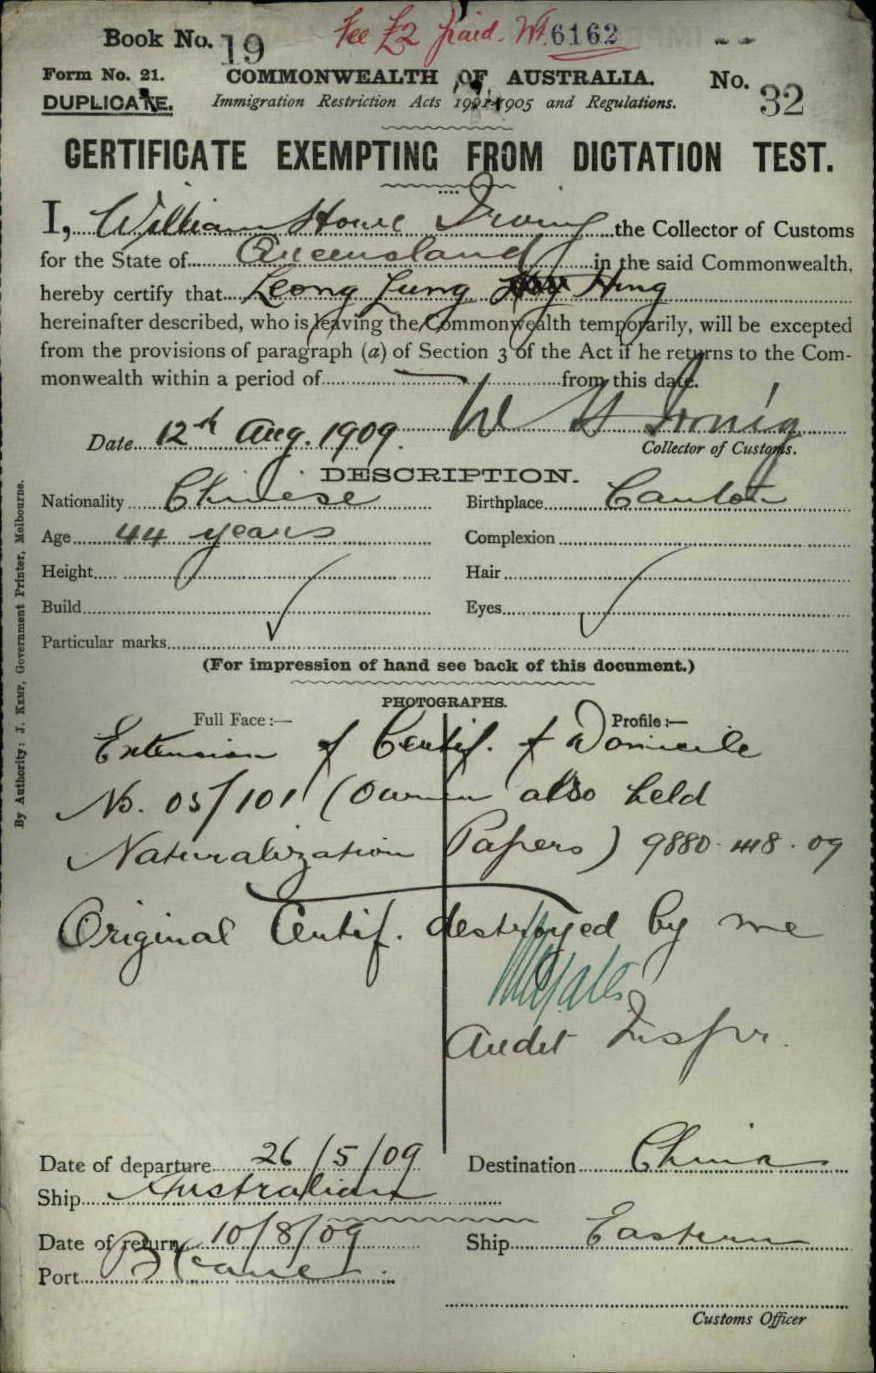 Book No. 19 Fee £2 paid. No. 6162
Form No. 21. COMMONWEALTH OF AUSTRALIA. No. 32
DUPLICATE. Immigration Restriction Acts 1901-1905 and Regulations.
CERTIFICATE EXEMPTING FROM DICTATION TEST.
I, William Howe Irving the Collector of Customs
for the State of Queensland in the said Commonwealth,
hereby certify that Leong Lung Hing
hereinafter described, who is leaving the Commonwealth temporarily, will be excepted
from the provisions of paragraph (a) of Section 3 of the Act if he returns to the Com-
monwealth within a period of from this date.
W H Irving
Date 12th Aug. 1909. Collector of Customs.
DESCRIPTION.
Nationality Chinese Birthplace Canton
Age 44 years Complexion
Height Hair
Build Eyes
Particular marks
(For impression of hand see back of this document.)
PHOTOGRAPHS.
Full Face:— Profile:—
Extension of Certif. of Domicile
No. 05/101 (Owner also held
Naturalization Papers) 9880 . 09
Original Certif. destroyed by me
Audit Inspr.
Date of departure 26/5/09 Destination China
Ship Australian
Date of return 10/8/09 Ship Eastern
Port Bbane
Customs Officer
By Authority: J. Kemp, Government Printer, Melbourne.